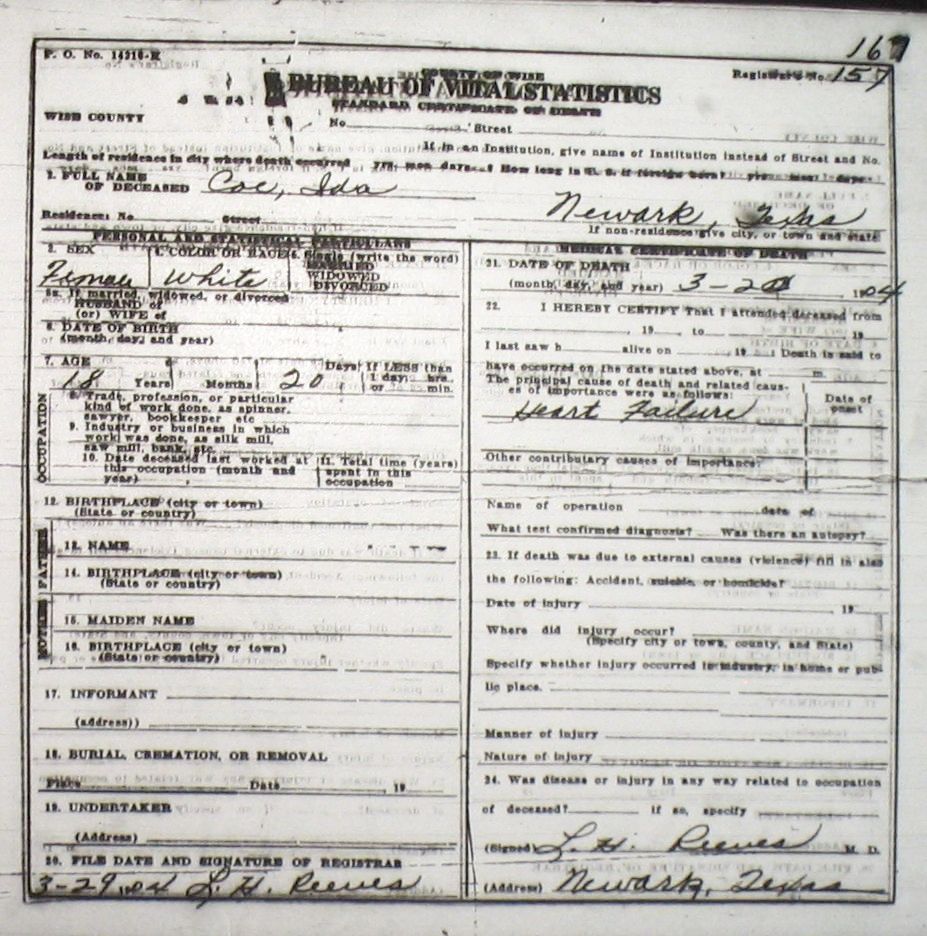 167
P. O. No. 14216-E
COUNTY OF WISE
Registrar's No. 157
BUREAU OF VITAL STATISTICS
STANDARD CERTIFICATE OF DEATH
WISE COUNTY
No. Street
If in an Institution, give name of Institution instead of Street and No.
Length of residence in city where death occurred yrs. mos days How long in U. S. if foreign born? yrs mos days
2. FULL NAME
OF DECEASED Coe, Ida
Newark, Texas
Residence: No Street
If non-residence give city, or town and state
PERSONAL AND STATISTICAL PARTICULARS
3. SEX 4. COLOR OR RACE Single (write the word)
MARRIED
WIDOWED
DIVORCED
Female White
5a. If married, widowed, or divorced
HUSBAND OF
(or) WIFE of
6. DATE OF BIRTH
(month, day, and year)
7. AGE
18 Years Months 20 Days If LESS than
1 day, hrs.
or min.
OCCUPATION
8. Trade, profession, or particular
kind of work done, as spinner,
sawyer, bookkeeper etc
9. Industry or business in which
work was done, as silk mill,
saw mill, bank, etc.
10. Date deceased last worked at
this occupation (month and
year)
11. Total time (years)
spent in this
occupation
12. BIRTHPLACE (city or town)
(State or country)
FATHER
13. NAME
14. BIRTHPLACE (city or town)
(State or country)
MOTHER
15. MAIDEN NAME
16. BIRTHPLACE (city or town)
(State or country)
17. INFORMANT
(address))
18. BURIAL, CREMATION, OR REMOVAL
Place Date 19
19. UNDERTAKER
(Address)
20. FILE DATE AND SIGNATURE OF REGISTRAR
3-29 1904 L. H. Reeves
MEDICAL CERTIFICATE OF DEATH
21. DATE OF DEATH
(month, day, and year) 3-2 1904
22. I HEREBY CERTIFY That I attended deceased from
, 19 , to 19
I last saw h alive on 19 Death is said to
have occurred on the date stated above, at m.
The principal cause of death and related caus-
es of importance were as follows:
Date of
onset
Heart Failure
Other contributary causes of importance?
Name of operation date of
What test confirmed diagnosis? Was there an autopsy?
23. If death was due to external causes (violence) fill in also
the following: Accident, suicide, or homicide?
Date of injury 19
Where did injury occur?
(Specify city or town, county, and State)
Specify whether injury occurred in industry, in home or pub-
lic place.
Manner of injury
Nature of injury
24. Was disease or injury in any way related to occupation
of deceased? if so, specify
(Signed) L. H. Reeves M. D.
(Address) Newark, Texas